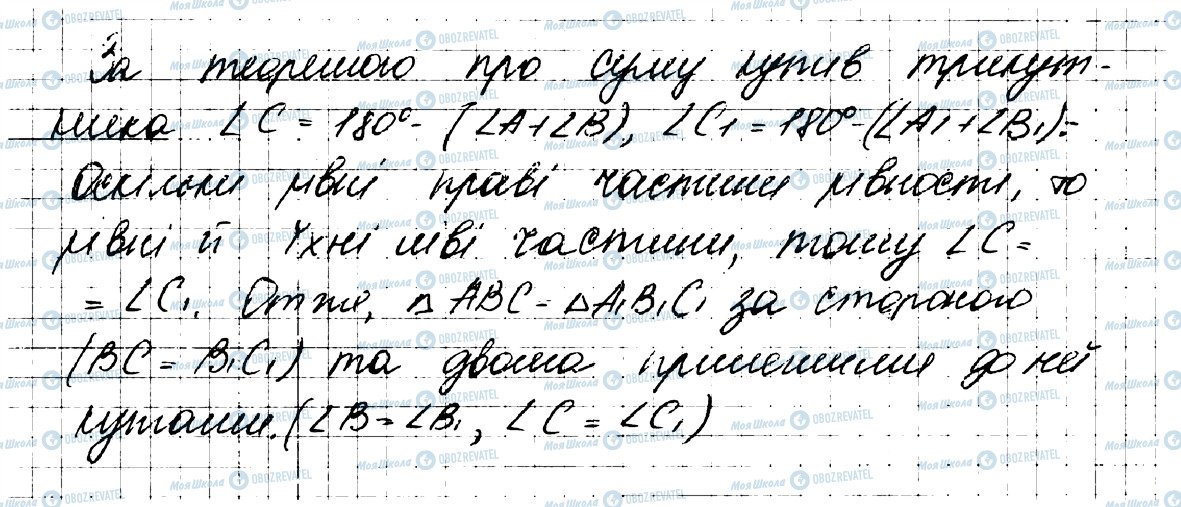 За теоремою про суму кутів трикут-
ника ∠C = 180° - (∠A + ∠B), ∠C₁ = 180° - (∠A₁ + ∠B₁):
Оскільки рівні праві частини рівності, то
рівні й їхні ліві частини, тому ∠C =
= ∠C₁. Отже, △ABC - △A₁B₁C₁ за стороною
(BC = B₁C₁) та двома прилеглими до неї
кутами. (∠B = ∠B₁, ∠C = ∠C₁)